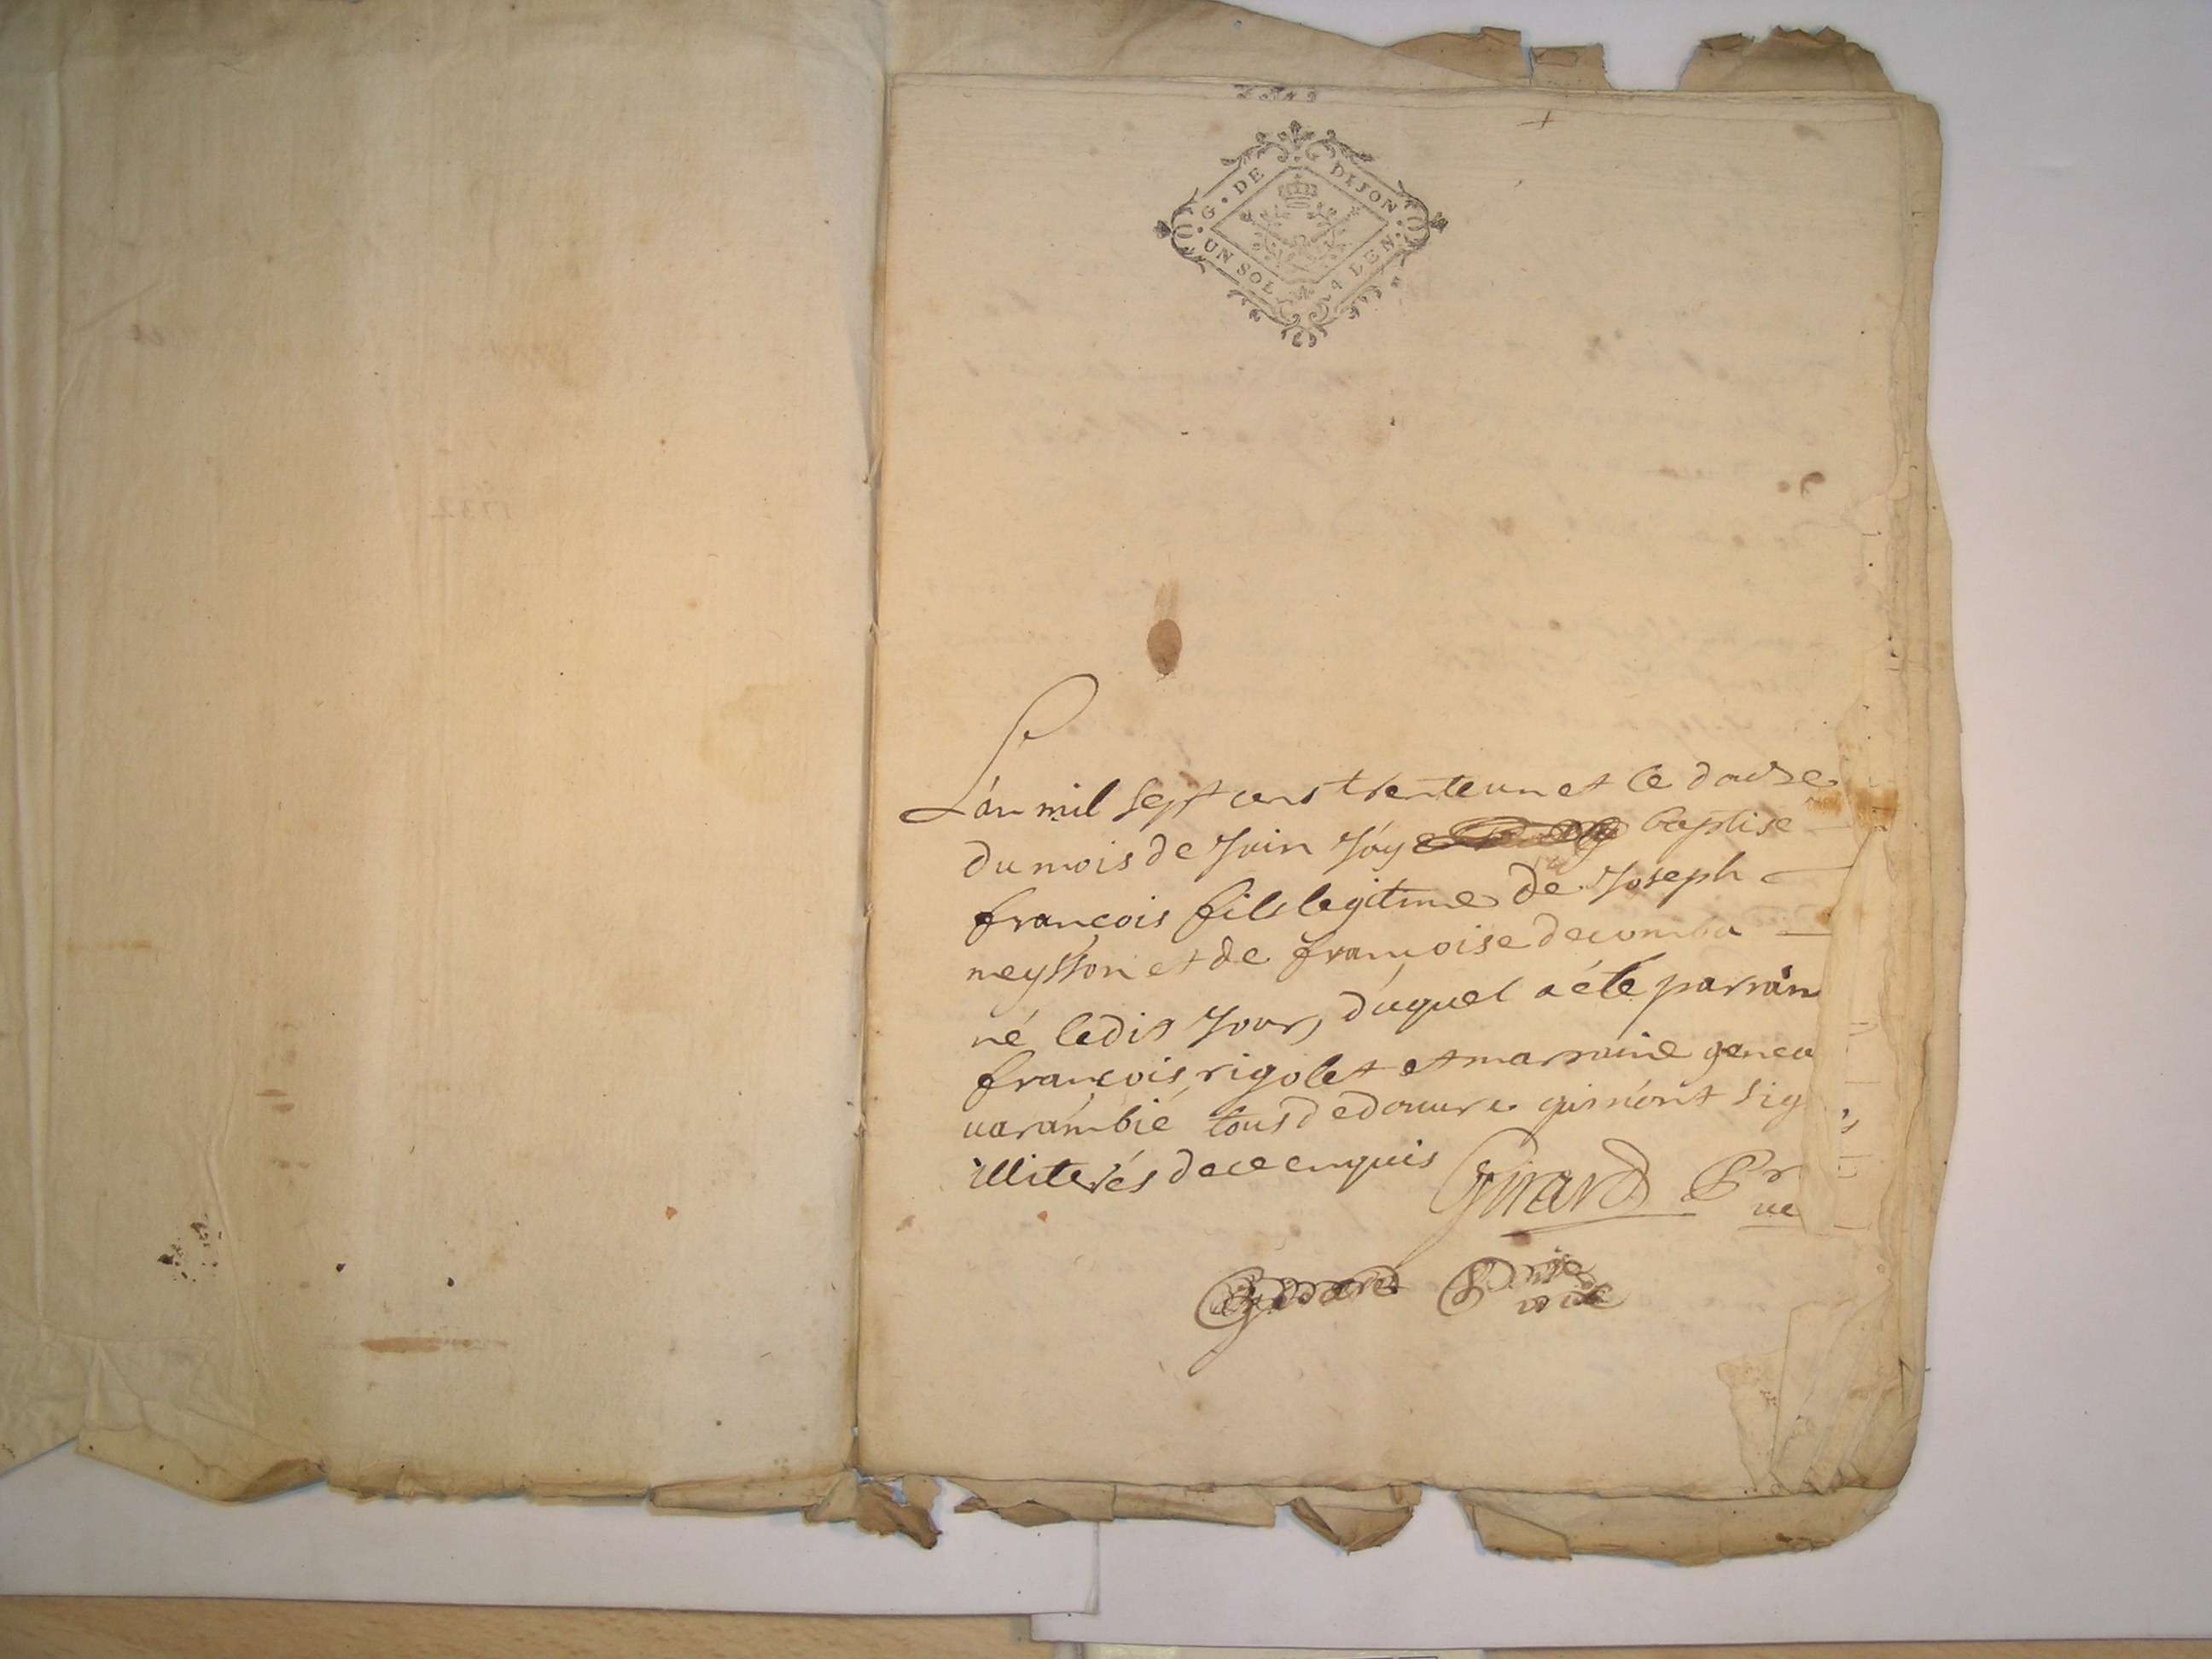 G. DE DIJON.
UN SOL 4 DEN.
L'an mil sept cens trente un et le douze
du mois de Juin J'ay baptisé
francois fils legitime de Joseph
neysson et de francoise decomba
né ledit Jour, duquel a été parrain
francois rigolet et marraine geneu
uarambié tous de douure qui n'ont sig
illiterés de ce enquis Girard Pr
ue
1732